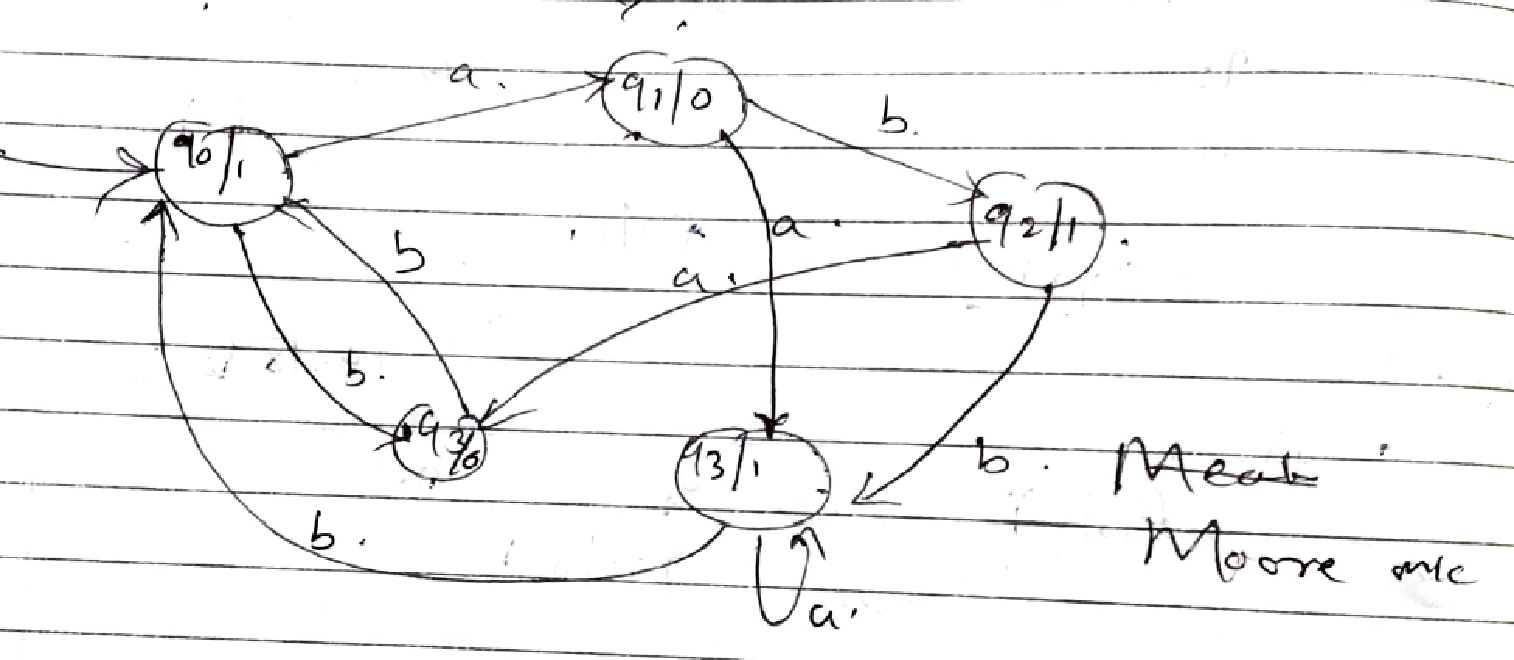 a.
q1/0
b.
q0/1
a.
q2/1
b
a.
b.
q3/0
q3/1
b.
Meal
Moore m/c
b.
a.